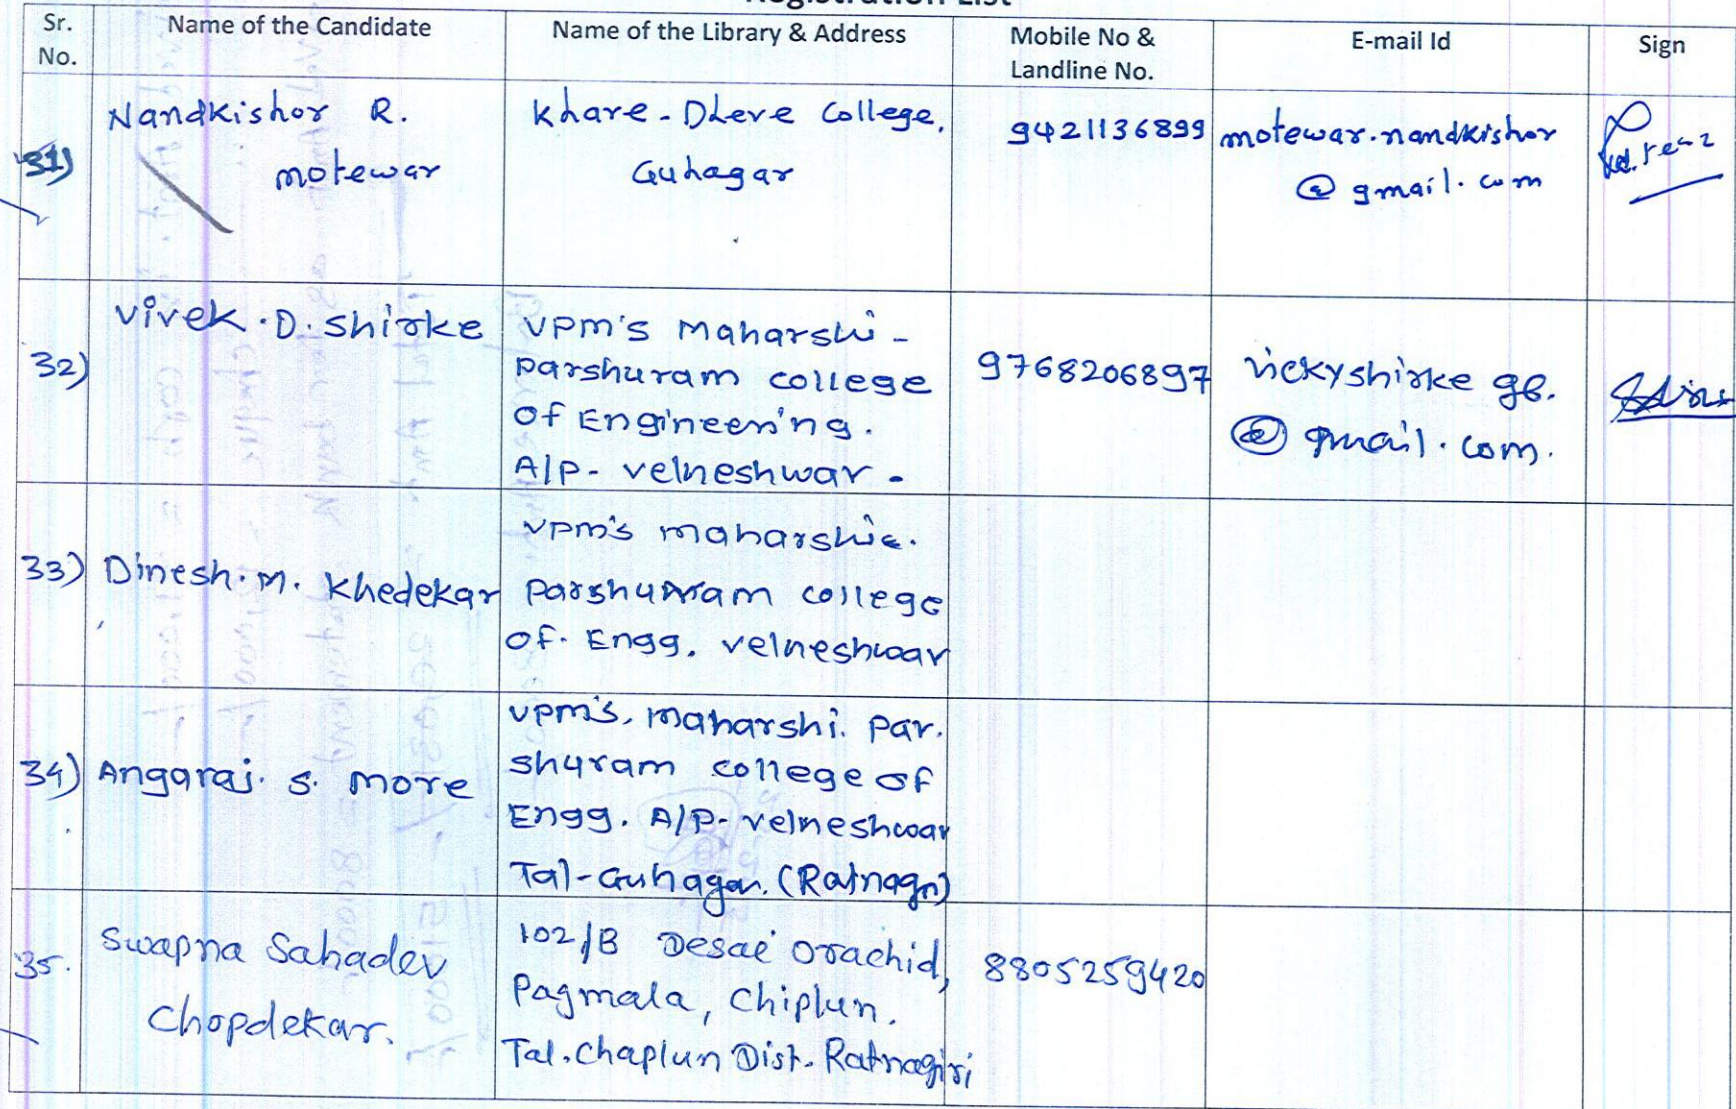 Registration List
Sr. No.
Name of the Candidate
Name of the Library & Address
Mobile No & Landline No.
E-mail Id
Sign
31)
Nandkishor R.
motewar
Khare - Dhere College,
Guhagar
9421136899
motewar.nandkishor
@ gmail.com
32)
Vivek . D. Shirke
VPM's Maharshi -
Parshuram college
Of Engineering.
A/P- velneshwar -
9768206897
vickyshirke 98.
@ gmail.com.
33)
Dinesh. M. Khedekar
VPM's maharshi.
Parshuram college
of. Engg. velneshwar
34)
Angaraj. S. More
VPM's. Maharshi. Par.
shuram college of
Engg. A/P- velneshwar
Tal-Guhagar. (Ratnagri)
35.
Swapna Sahadev
Chopdekar.
102/B Desai Orachid,
Pagmala, Chiplun.
Tal. Chaplun Dist. Ratnagiri
8805259420